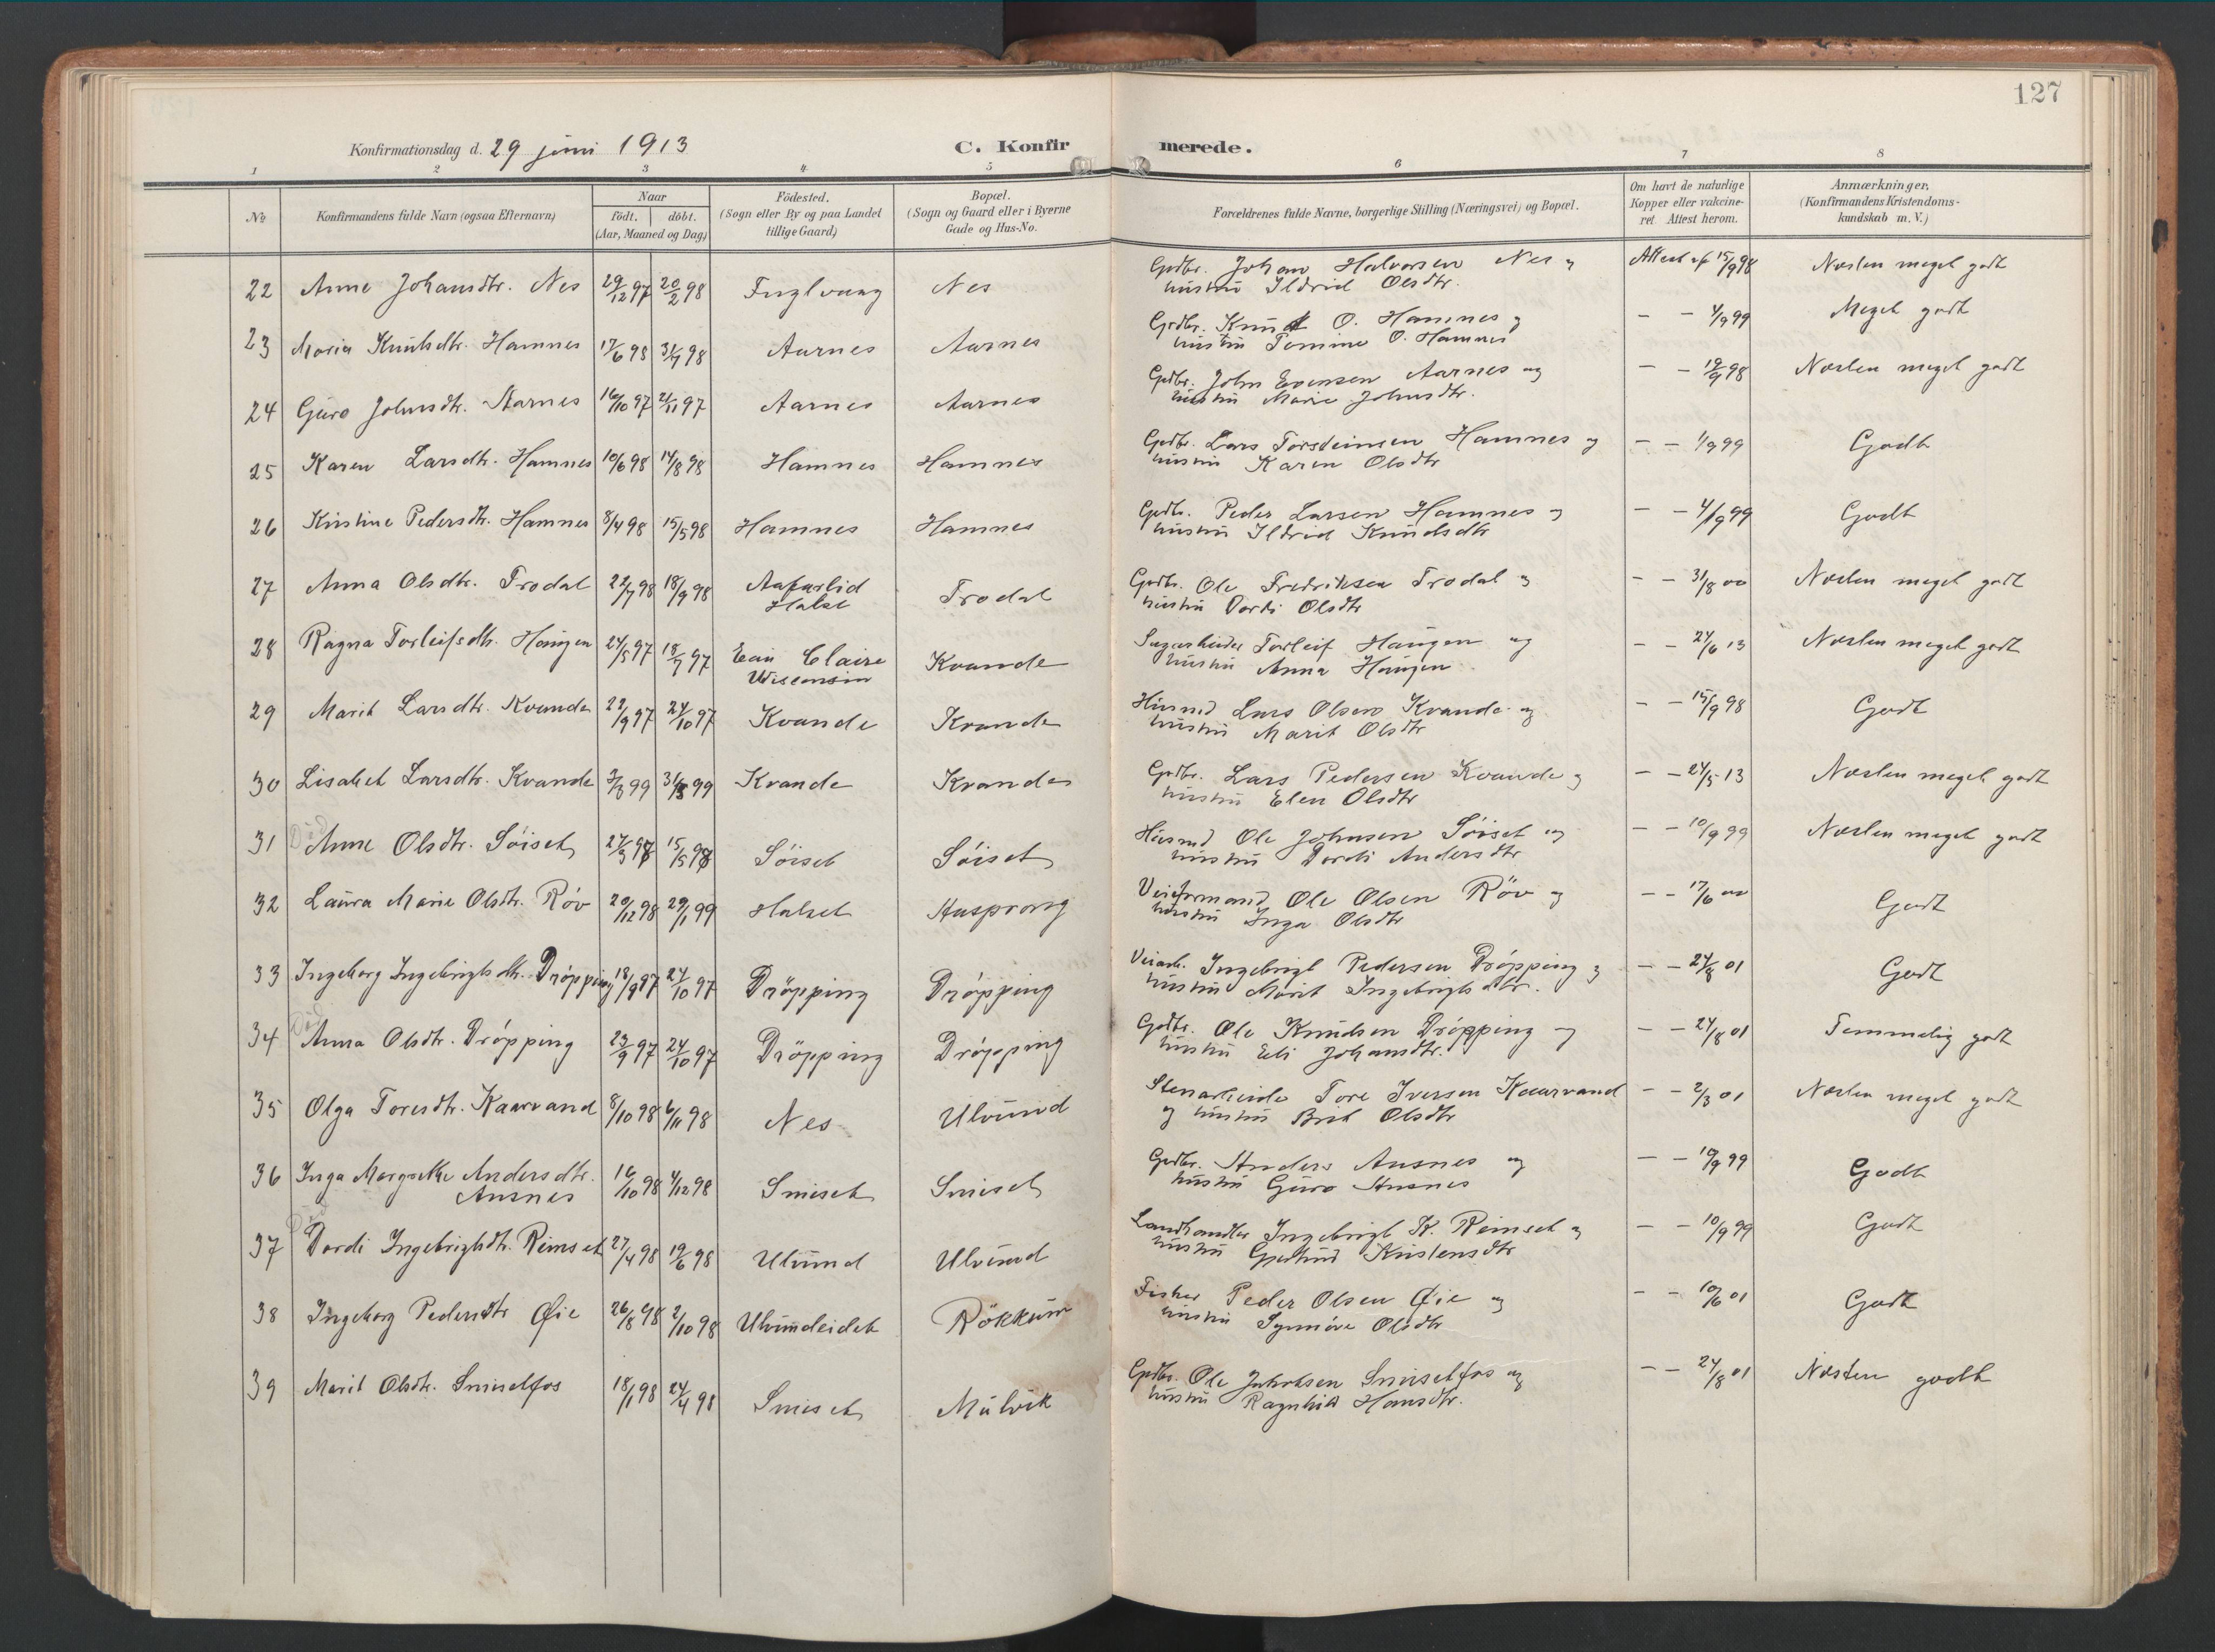 127
Konfirmationsdag d. 29 juni 1913 C. Konfirmerede.
1 2 3 4 5 6 7 8
No
Konfirmandens fulde Navn (ogsaa Efternavn)
Naar
födt. döbt.
(Aar, Maaned og Dag)
Födested.
(Sogn eller By og paa Landet
tillige Gaard)
Bopæl.
(Sogn og Gaard eller i Byerne
Gade og Hus-No.
Forældrenes fulde Navne, borgerlige Stilling (Næringsvei) og Bopæl.
Om havt de naturlige
Kopper eller vakcine-
ret. Attest herom.
Anmærkninger.
(Konfirmandens Kristendoms-
kundskab m. V.)
22 Anne Johansdtr. Nes 29/12 97 20/2 98 Fuglvaag Nes Grdbr. Johan Halvorsen Nes og Attest af 15/9 98 Næsten meget godt
hustru Ildrid Olsdtr.
23 Maria Knutsdtr. Hamnes 17/6 98 31/7 98 Aarnes Aarnes Grdbr. Knut O. Hamnes og - - 1/9 99 Meget godt
hustru Tomine O. Hamnes
24 Guro Johnsdtr. Aarnes 16/10 97 21/11 97 Aarnes Aarnes Grdbr. John Evensen Aarnes og - - 19/9 98 Næsten meget godt
hustru Marie Johnsdtr.
25 Karen Larsdtr. Hamnes 10/6 98 14/8 98 Hamnes Hamnes Grdbr. Lars Torsteinsen Hamnes og - - 1/9 99 Godt
hustru Karen Olsdtr
26 Kristine Pedersdtr. Hamnes 8/4 98 15/5 98 Hamnes Hamnes Grdbr. Peder Larsen Hamnes og - - 4/9 99 Godt
hustru Ildrid Knudsdtr
27 Anna Olsdtr. Trodal 22/7 98 18/9 98 Aafarlid
Halse Trodal Grdbr. Ole Fredriksen Trodal og - - 31/8 00 Næsten meget godt
hustru Dordi Olsdtr
28 Ragna Torleifsdtr. Haugen 24/5 97 18/7 97 Eau Claire
Wisconsin Kvande Sagarbeider Torleif Haugen og - - 24/6 13 Næsten meget godt
hustru Anna Haugen
29 Marit Larsdtr. Kvande 22/9 97 24/10 97 Kvande Kvande Husmd Lars Olsen Kvande og - - 15/9 98 Godt
hustru Marit Olsdtr
30 Lisabet Larsdtr. Kvande 99 99 Kvande Kvande Grdbr. Lars Pedersen Kvande og - - 24/5 13 Næsten meget godt
hustru Elen Olsdtr
Död
31 Anne Olsdtr. Söiset 27/3 98 15/5 98 Söiset Söiset Husmd Ole Johnsen Söiset og - - 10/9 99 Næsten meget godt
hustru Dordi Andersdtr
32 Laura Marie Olsdtr. Röv 20/12 98 29/1 99 Halset Husprong Veiformand Ole Olsen Röv og - - 17/6 00 Godt
hustru Inga Olsdtr
33 Ingeborg Ingebrigtsdtr. Dröpping 18/9 97 24/10 97 Dröpping Dröpping Veiarb. Ingebrigt Pedersen Dröpping og - - 24/8 01 Godt
hustru Marit Ingebrigtsdtr.
Död
34 Anna Olsdtr. Dröpping 23/9 97 24/10 97 Dröpping Dröpping Grdbr. Ole Knudsen Dröpping og - - 24/8 01 Temmelig godt
hustru Eli Johansdtr.
35 Olga Toresdtr. Kaarvand 8/10 98 6/11 98 Nes Ulvund Stenarbeider Tore Iversen Kaarvand - - 2/3 01 Næsten meget godt
og hustru Brit Olsdtr
36 Inga Margrethe Andersdtr.
Ansnes 16/10 98 4/12 98 Smiset Smiset Grdbr. Anders Ansnes og - - 19/9 99 Godt
hustru Guro Ansnes
Död
37 Dordi Ingebrigtsdtr. Reimset 27/4 98 19/6 98 Ulvund Ulvund Landhandler Ingebrigt K. Reimset og - - 10/9 99 Godt
hustru Gjertrud Kristensdtr
38 Ingeborg Pedersdtr Øie 26/8 98 2/10 98 Ulvundeidet Rökkum Fisker Peder Olsen Øie og - - 10/6 01 Godt
hustru Synnöve Olsdtr
39 Marit Olsdtr. Smisetfos 18/1 98 24/4 98 Smiset Mulvik Grdbr. Ole Jakobsen Smisetfos og - - 24/8 01 Næsten godt
hustru Ragnhild Hansdtr.